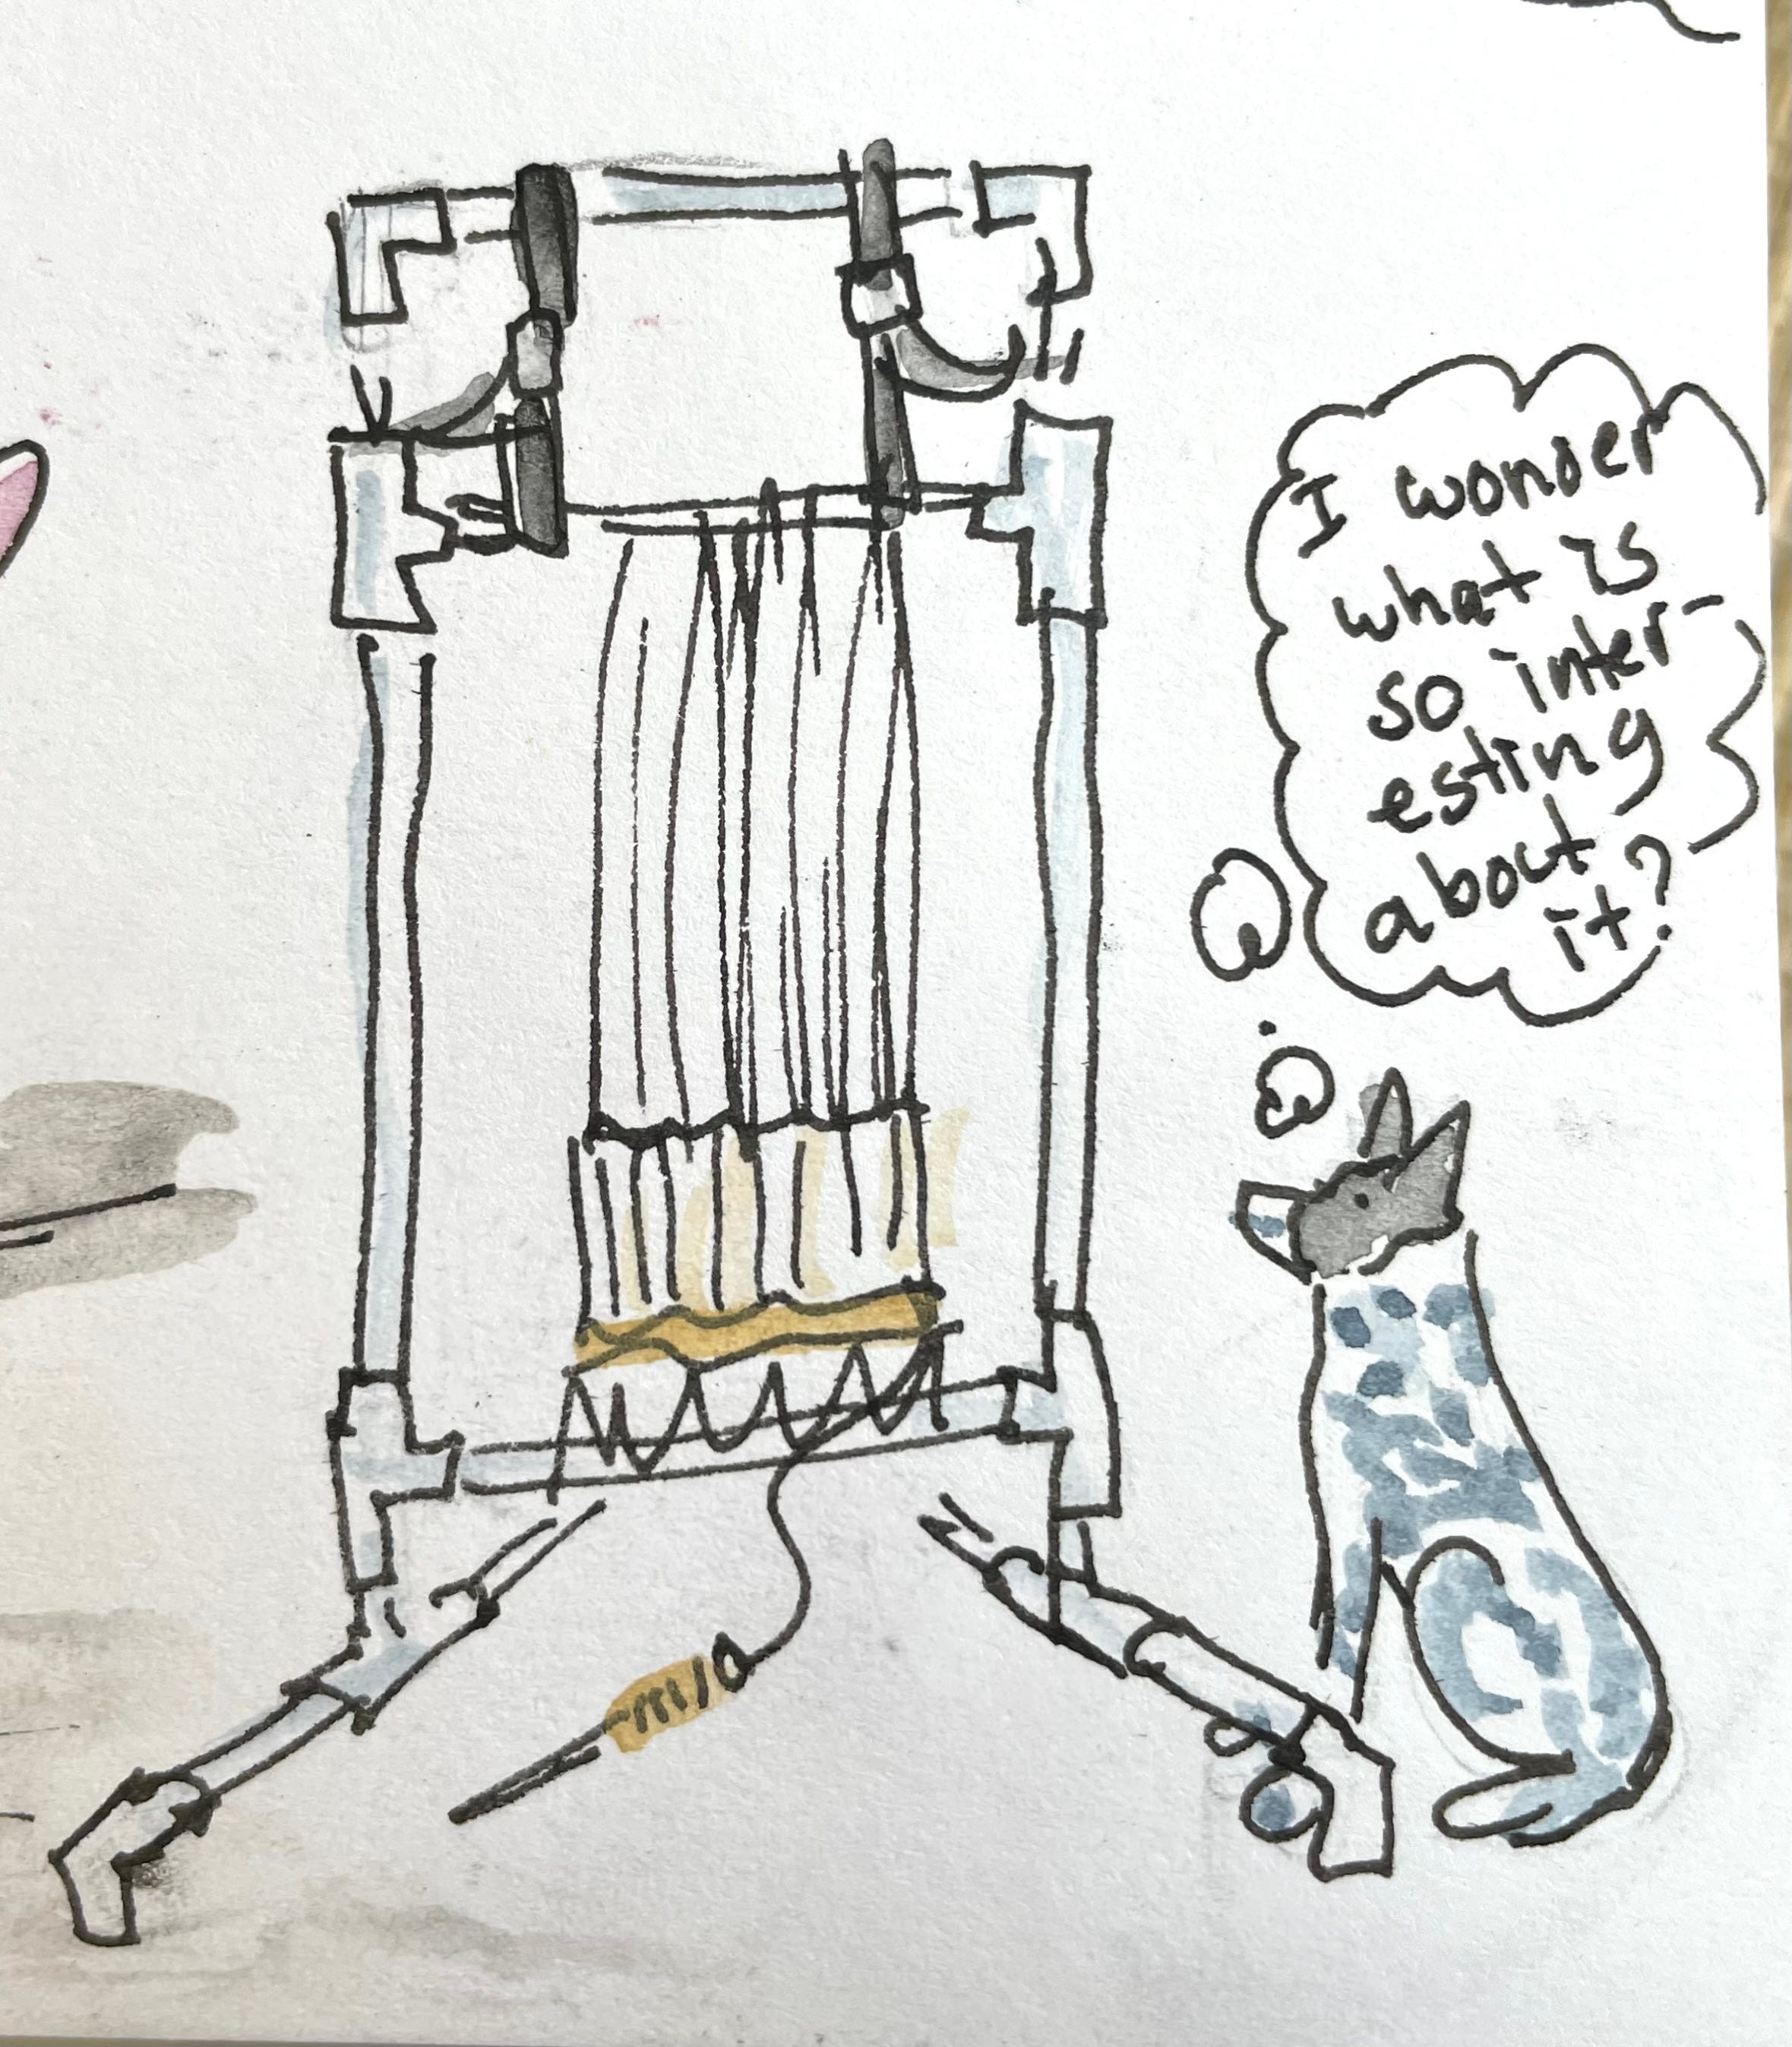 I wonder
what is
so inter-
esting
about
it?